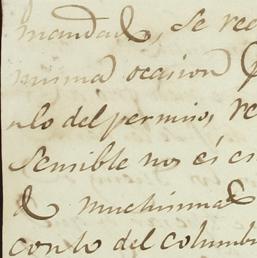 mandado, se rec
misma ocasion p
nlo del permiso, re
sensible no és es
muchisimas
con lo del Columbi